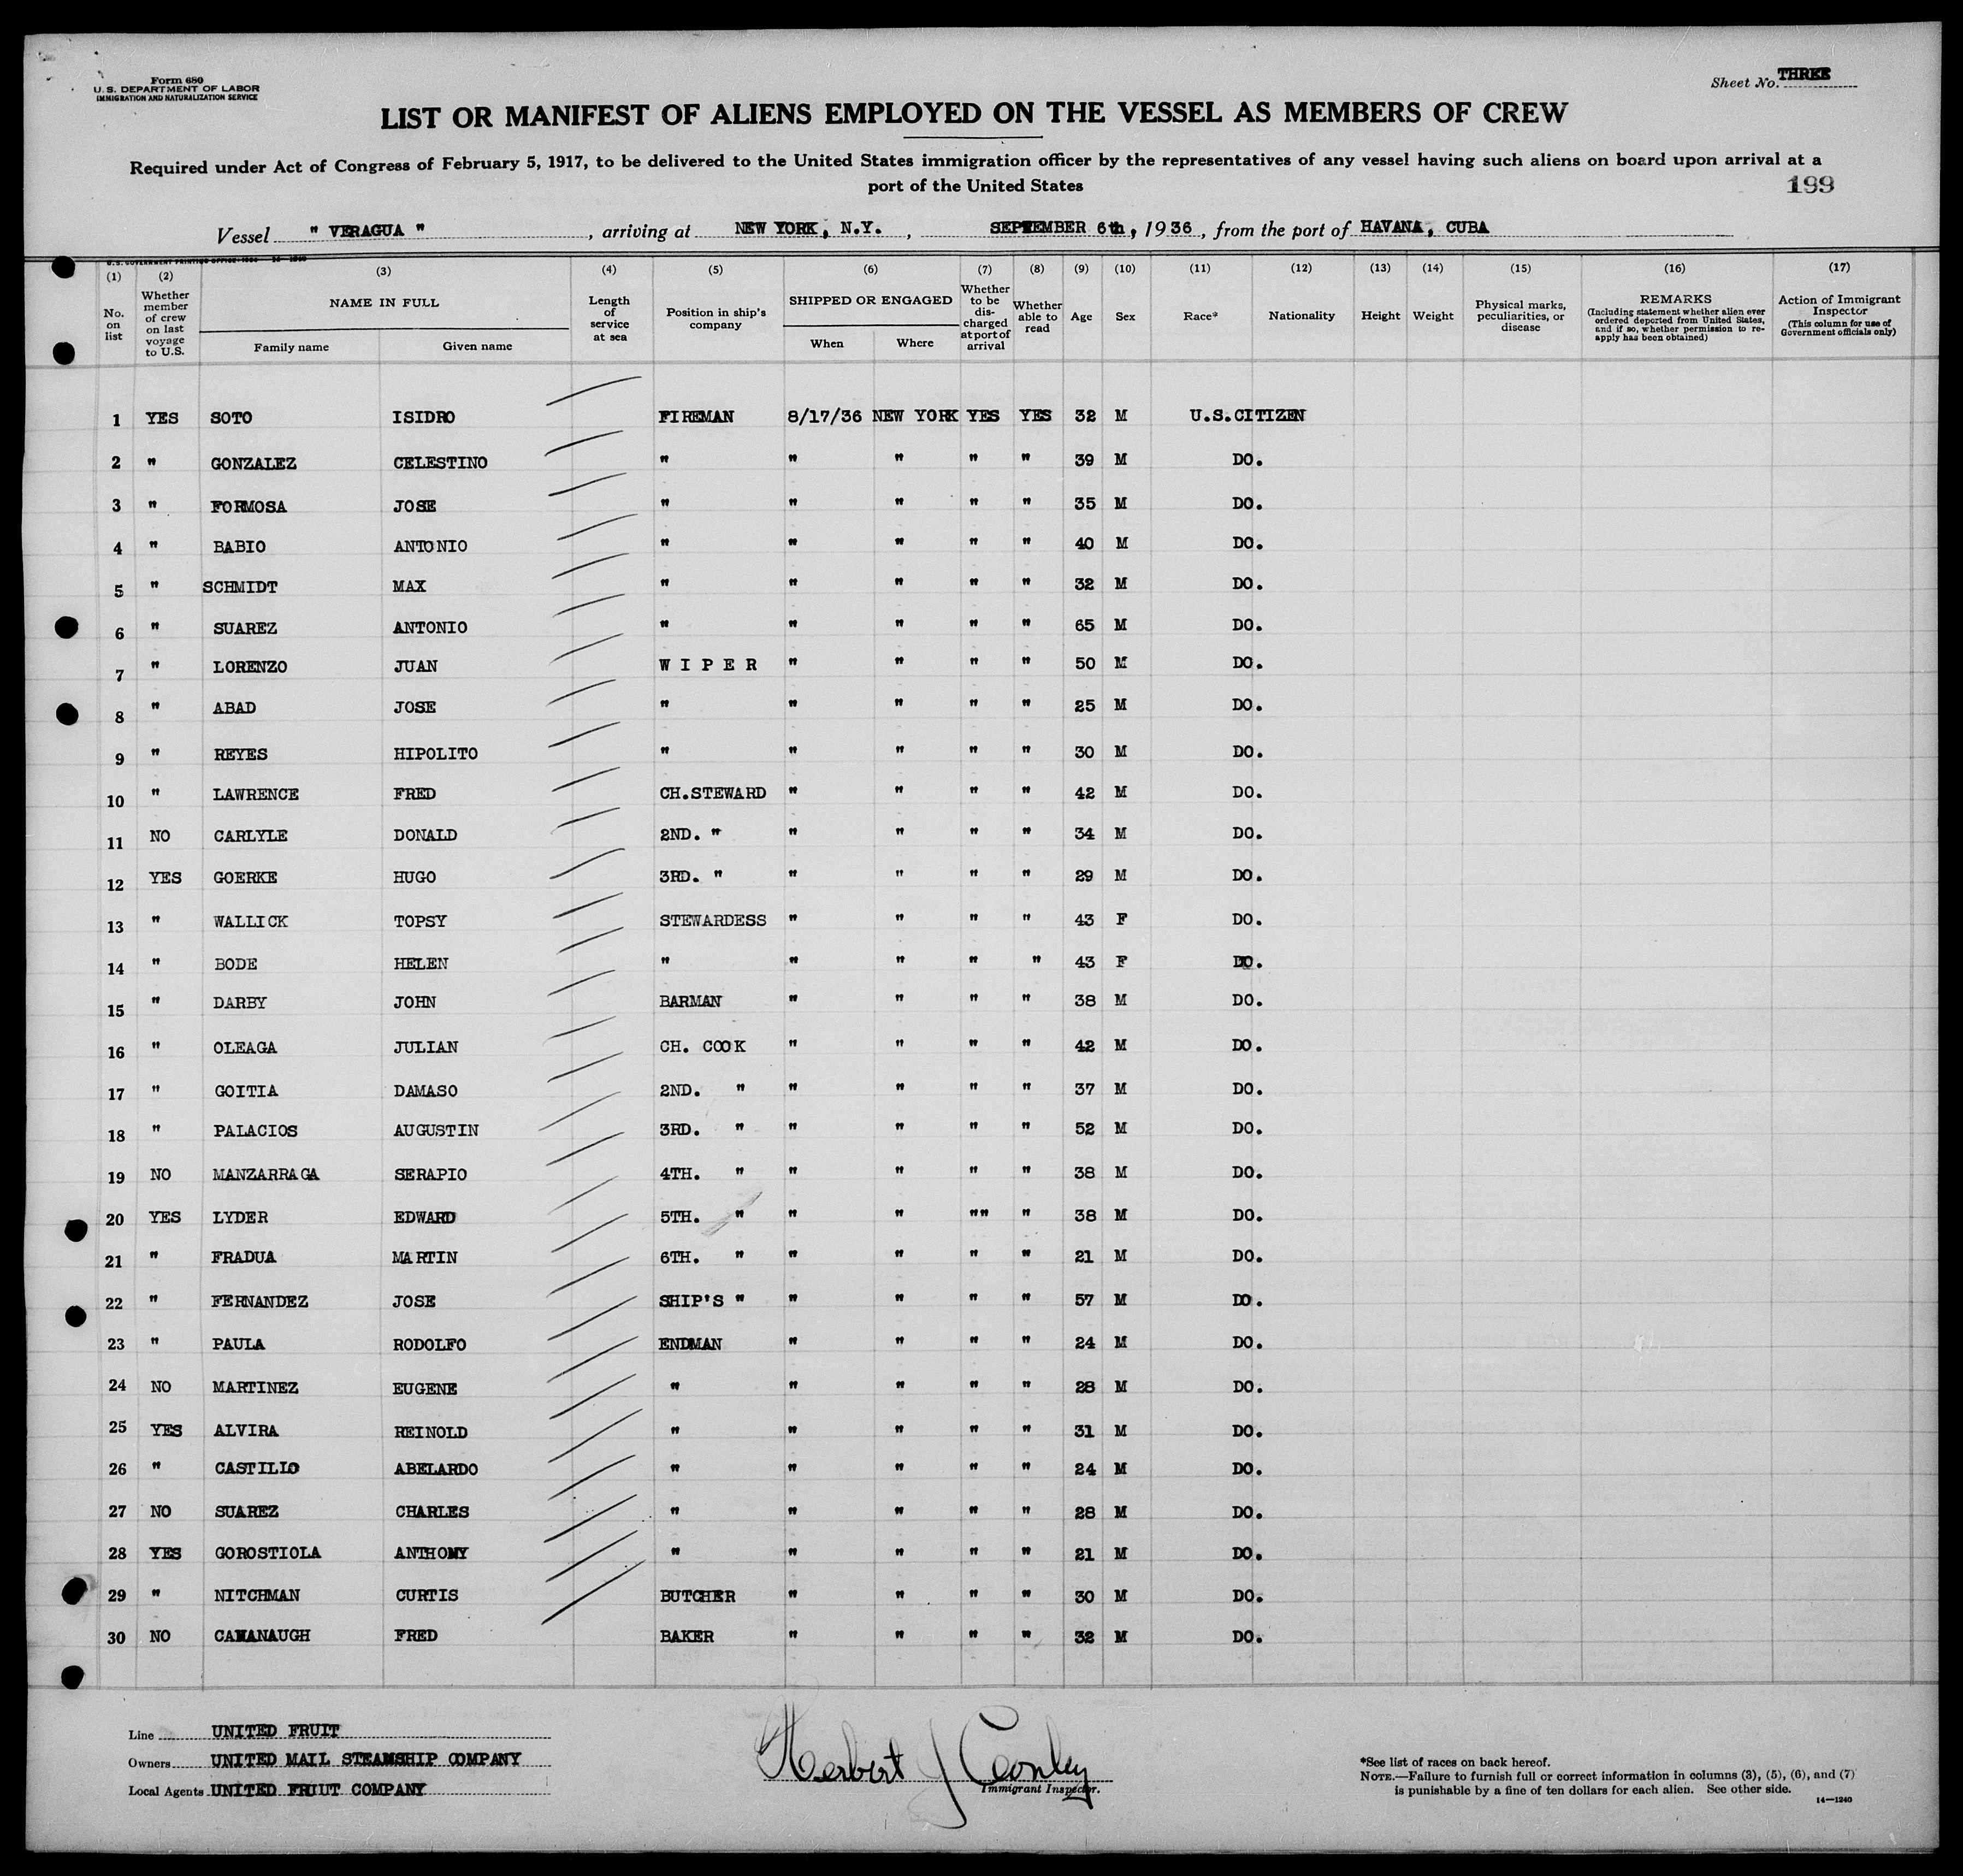 Form 680
U. S. DEPARTMENT OF LABOR
IMMIGRATION AND NATURALIZATION SERVICE
Sheet No. THREE
LIST OR MANIFEST OF ALIENS EMPLOYED ON THE VESSEL AS MEMBERS OF CREW
Required under Act of Congress of February 5, 1917, to be delivered to the United States immigration officer by the representatives of any vessel having such aliens on board upon arrival at a
port of the United States
199
Vessel " VERAGUA " , arriving at NEW YORK, N.Y. , SEPTEMBER 6th, 1936, from the port of HAVANA, CUBA
(1) (2) (3) (4) (5) (6) (7) (8) (9) (10) (11) (12) (13) (14) (15) (16) (17)
No. on list
Whether member of crew on last voyage to U.S.
NAME IN FULL
Family name Given name
Length of service at sea
Position in ship's company
SHIPPED OR ENGAGED
When Where
Whether to be discharged at port of arrival
Whether able to read
Age
Sex
Race*
Nationality
Height
Weight
Physical marks, peculiarities, or disease
REMARKS
(Including statement whether alien ever ordered deported from United States, and if so, whether permission to re-apply has been obtained)
Action of Immigrant Inspector
(This column for use of Government officials only)
1 YES SOTO ISIDRO FIREMAN 8/17/36 NEW YORK YES YES 32 M U.S.CITIZEN
2 " GONZALEZ CELESTINO " " " " " 39 M DO.
3 " FORMOSA JOSE " " " " " 35 M DO.
4 " BABIO ANTONIO " " " " " 40 M DO.
5 " SCHMIDT MAX " " " " " 32 M DO.
6 " SUAREZ ANTONIO " " " " " 65 M DO.
7 " LORENZO JUAN W I P E R " " " " 50 M DO.
8 " ABAD JOSE " " " " " 25 M DO.
9 " REYES HIPOLITO " " " " " 30 M DO.
10 " LAWRENCE FRED CH.STEWARD " " " " 42 M DO.
11 NO CARLYLE DONALD 2ND. " " " " " 34 M DO.
12 YES GOERKE HUGO 3RD. " " " " " 29 M DO.
13 " WALLICK TOPSY STEWARDESS " " " " 43 F DO.
14 " BODE HELEN " " " " " 43 F DO.
15 " DARBY JOHN BARMAN " " " " 38 M DO.
16 " OLEAGA JULIAN CH. COOK " " " " 42 M DO.
17 " GOITIA DAMASO 2ND. " " " " " 37 M DO.
18 " PALACIOS AUGUSTIN 3RD. " " " " " 52 M DO.
19 NO MANZARRAGA SERAPIO 4TH. " " " " " 38 M DO.
20 YES LYDER EDWARD 5TH. " " " "" " 38 M DO.
21 " FRADUA MARTIN 6TH. " " " " " 21 M DO.
22 " FERNANDEZ JOSE SHIP'S " " " " " 57 M DO.
23 " PAULA RODOLFO ENDMAN " " " " 24 M DO.
24 NO MARTINEZ EUGENE " " " " " 28 M DO.
25 YES ALVIRA REINOLD " " " " " 31 M DO.
26 " CASTILLO ABELARDO " " " " " 24 M DO.
27 NO SUAREZ CHARLES " " " " " 28 M DO.
28 YES GOROSTIOLA ANTHONY " " " " " 21 M DO.
29 " NITCHMAN CURTIS BUTCHER " " " " 30 M DO.
30 NO CAVANAUGH FRED BAKER " " " " 32 M DO.
Line UNITED FRUIT
Owners UNITED MAIL STEAMSHIP COMPANY
Local Agents UNITED FRIUT COMPANY
Herbert J Conley
Immigrant Inspector.
*See list of races on back hereof.
NOTE.—Failure to furnish full or correct information in columns (3), (5), (6), and (7)
is punishable by a fine of ten dollars for each alien. See other side.
14—1240